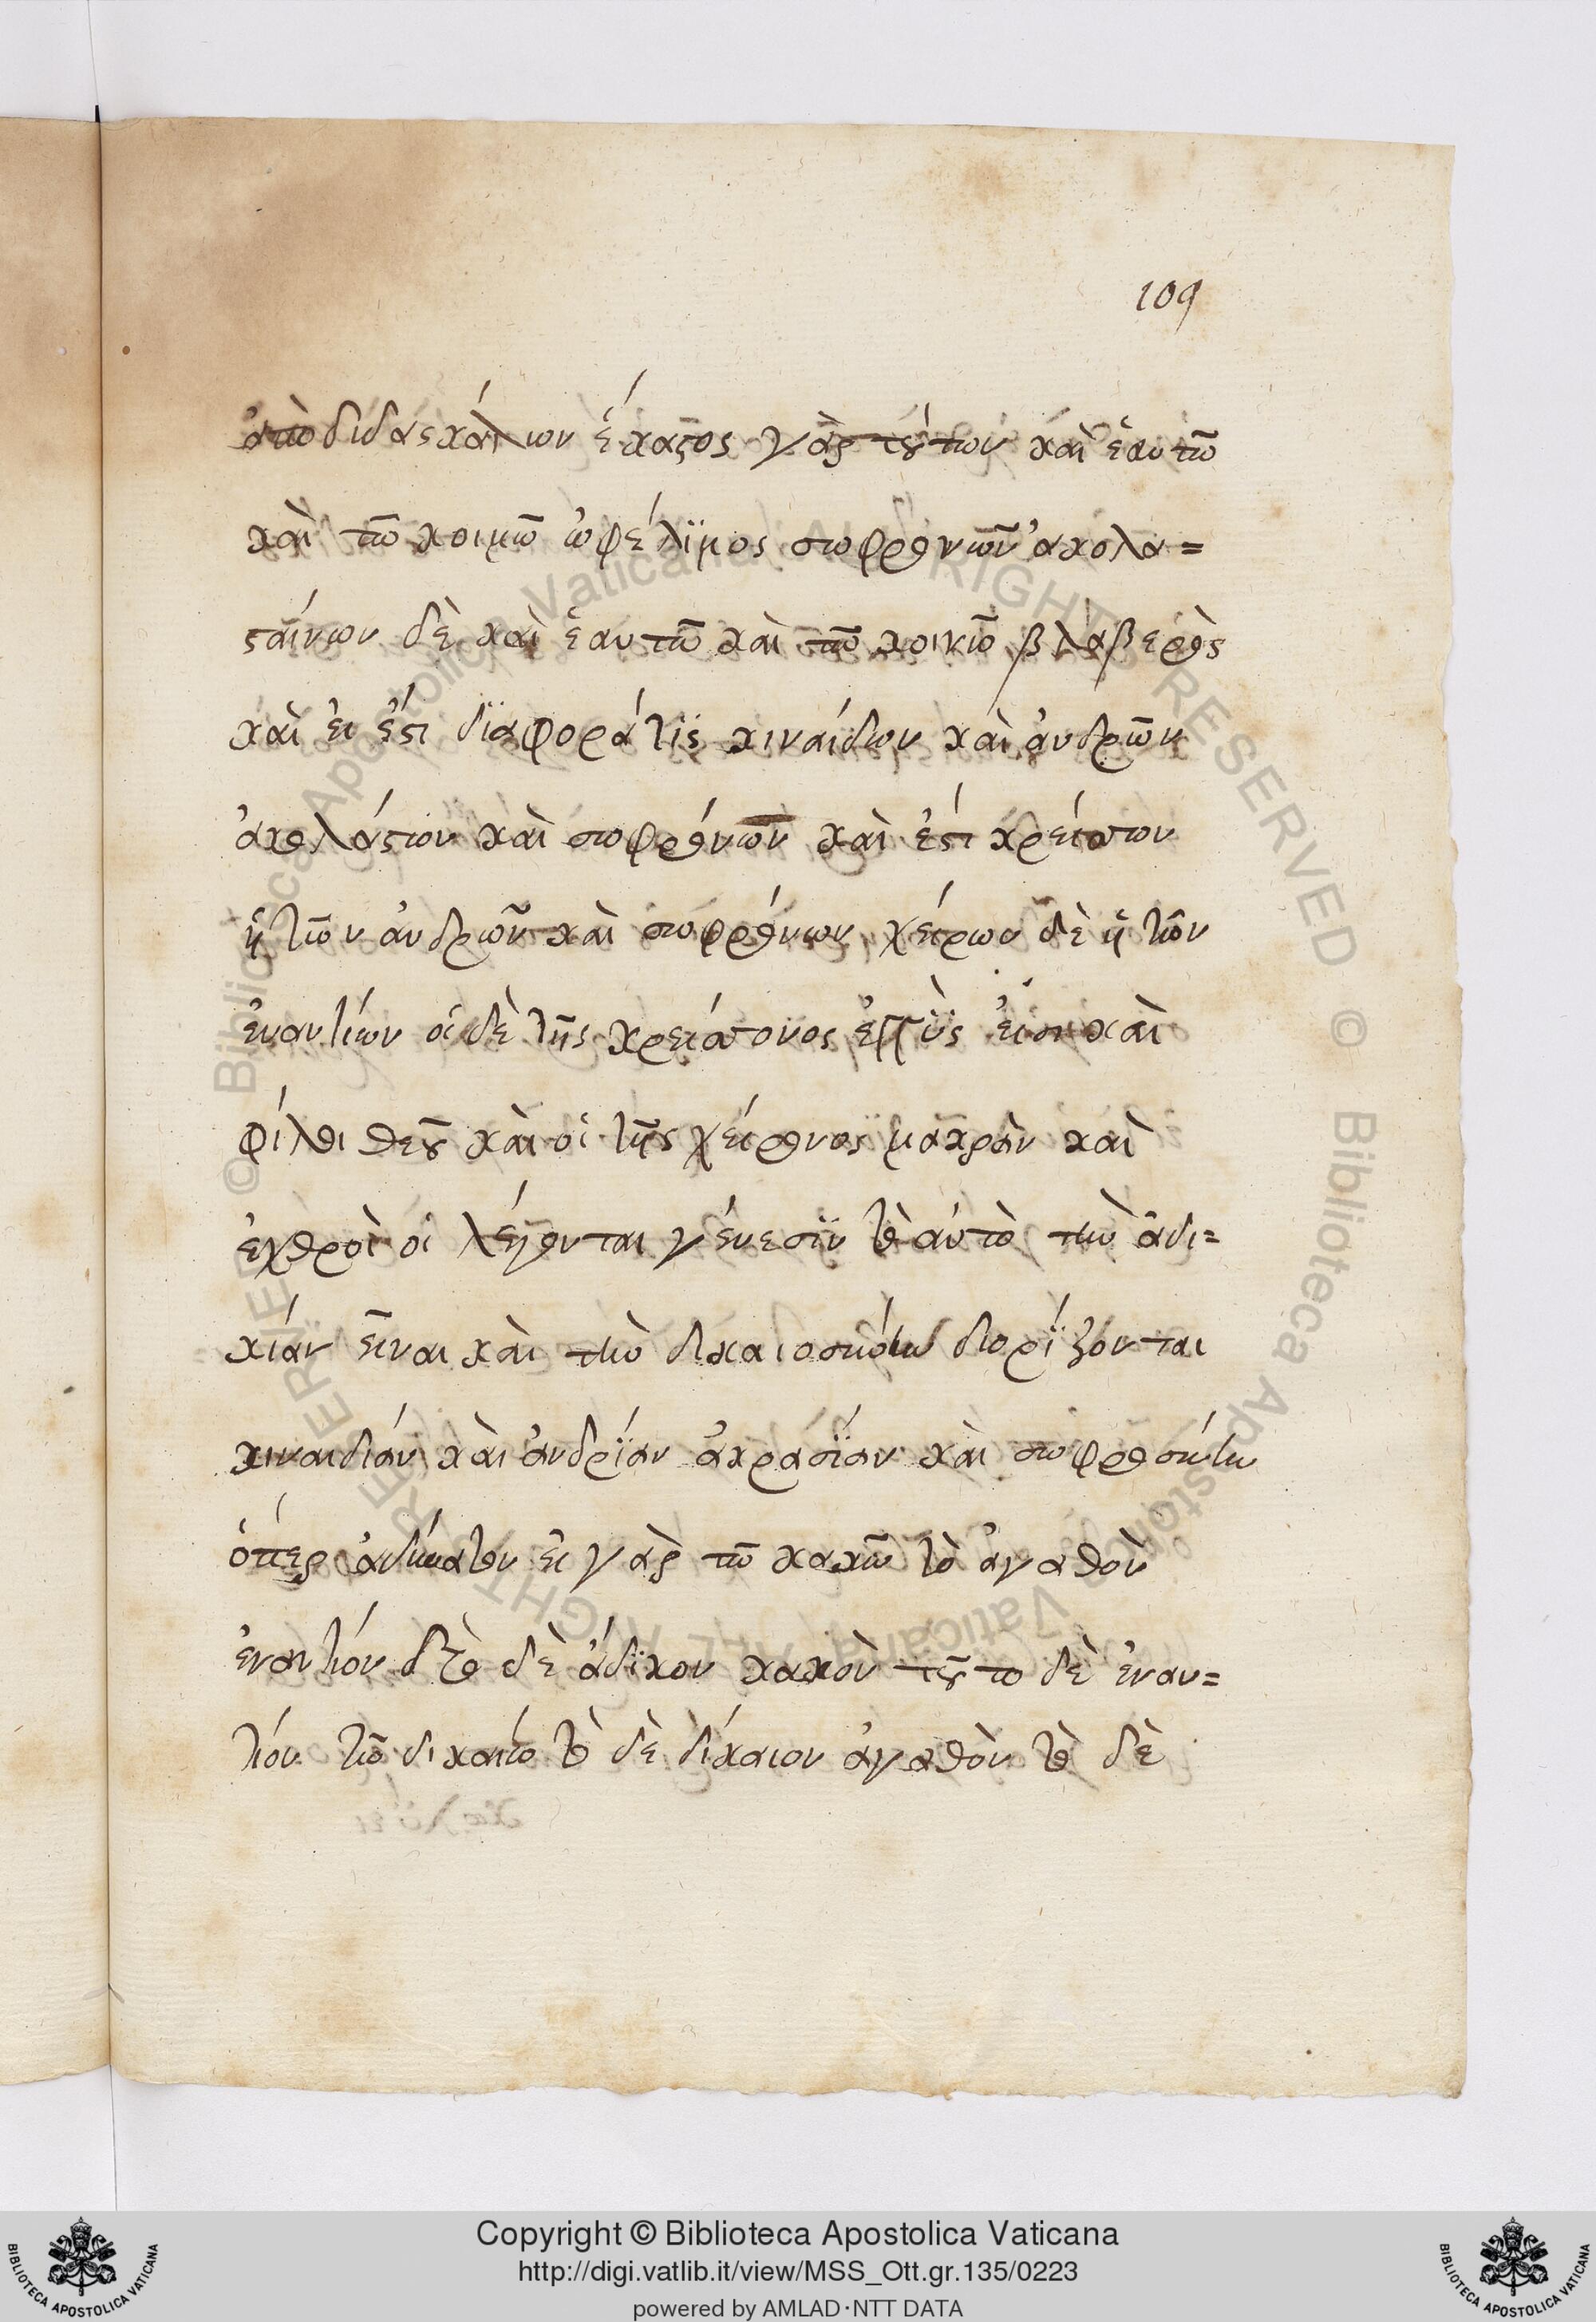 109
ἀπὸ διδασκάλιων ἕκαστος γὰρ τούτων καὶ ἑαυτῶ
καὶ τῶ κοινῶ ὠφέλϊμος σωφρονῶν ἀκολα=
σταίνων δὲ καὶ ἑαυτῶ καὶ τῶ κοινῶ βλαβερὸς
καὶ εἰ ἔστι δϊαφορά τὶς κιναίδων καὶ ἀνδρῶν
ἀκολάστων καὶ σωφρόνων καὶ ἐστι κρείττων
ἡ τῶν ἀνδρῶν καὶ σωφρόνων, χείρων δὲ ἡ τῶν
ἐναντίων οἱ δὲ τῆς κρείττονος ἐγγὺς εἰσι καὶ
φίλοι θεοῦ καὶ οἱ τῆς χείρονος μακρὰν καὶ
ἐχθροὶ οἱ λέγονται γένεσϊν τὸ αὐτὸ τὴν ἀδι=
κίαν εἶναι καὶ τὴν δικαιοσύνην διορίζονται
κιναιδίαν καὶ ἀνδρϊαν ἀκρασϊαν καὶ σωφροσύνην
ὅπερ ἀδύνατον εἰ γὰρ τῶ κακῶ τὸ ἀγαθὸν
ἐναντίον δὲ ἄδϊκον κακὸν τοῦτο δὲ ἐναν=
τίον τῶ δικαίω τὸ δὲ δίκαιον ἀγαθὸν τὸ δὲ
Copyright © Biblioteca Apostolica Vaticana
http://digi.vatlib.it/view/MSS_Ott.gr.135/0223
powered by AMLAD·NTT DATA
BIBLIOTECA APOSTOLICA VATICANA
BIBLIOTECA APOSTOLICA VATICANA